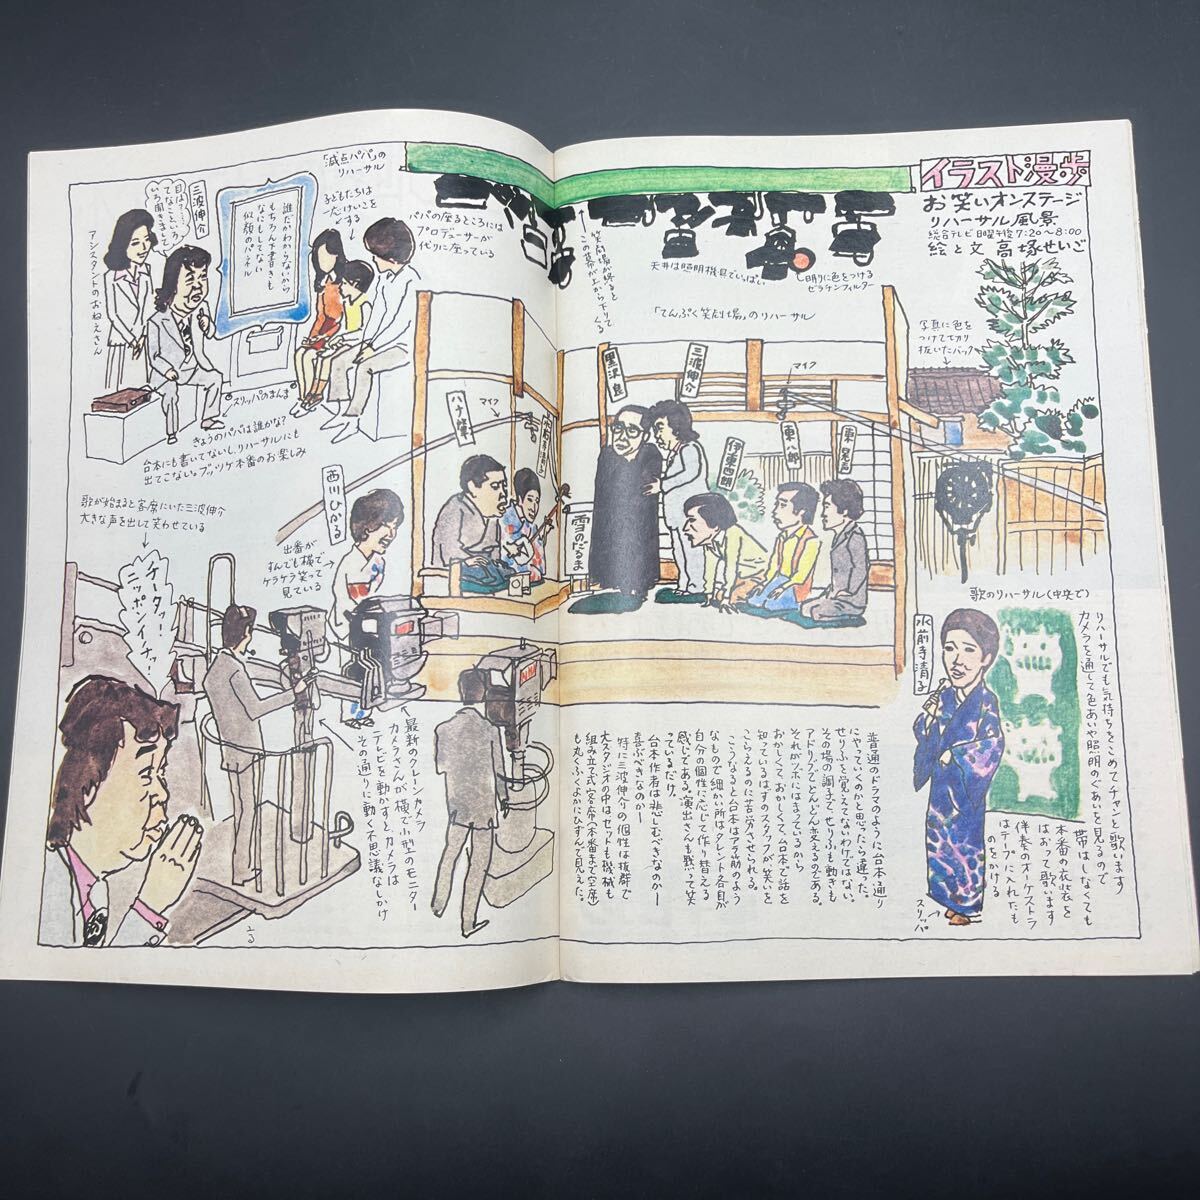 イラスト漫歩
お笑いオンステージ
リハーサル風景
総合テレビ日曜午後7:20〜8:00
絵と文 高塚せいご
「減点パパ」の
リハーサル
子どもたちは
だけいこを
する
パパの座るところには
プロデューサーが
代りに座っている
三波伸介
目は?……
てなこといろいろ聞きまして
アシスタントのおねえさん
誰だかわからないから
もちろん下書きも
なにもしてない
似顔のパネル
スリッパのまんま
きょうのパパは誰かな?
台本にも書いてないし、リハーサルにも
出てこない。ブッツケ本番のお楽しみ
笑劇場が終ると
この幕が上から下りてくる
天井は照明機具でいっぱい
明りに色をつける
ゼラチンフィルター
「てんぷく笑劇場」のリハーサル
写真に色を
つけて切り
抜いたバック
黒沢良
三波伸介
マイク
伊東四朗
東八郎
東 晃声
ハナ肇
マイク
水前寺清子
雪のだるま
西川ひかる
出番が
すんでも横で
ケラケラ笑って
見ている
歌が始まると客席にいた三波伸介
大きな声を出して笑わせている
チータッ!
ニッポンイチッ!
最新のクレーンカメラ
カメラさんが横で小型のモニター
テレビを動かすと、カメラは
その通りに動く不思議なしかけ
歌のリハーサル(中央で)
水前寺清子
スリッパ
リハーサルでも気持ちをこめてチャンと歌います
カメラを通して色あいや照明のぐあいを見るので
帯はしなくても
本番の衣裳を
はおって歌います
伴奏のオーケストラ
はテープに入れたも
のをかける
普通のドラマのように台本通り
にやっていくのかと思ったら違った。
せりふを覚えてないわけではない。
その場の調子で、せりふも動きも
アドリブでどんどん変えるのである。
それがツボにはまっているから
おかしくて、おかしくて、台本で話を
知っているはずのスタッフが笑いを
こらえるのに苦労させられる。
こうなると台本はアラ筋のよう
なもので細かい所はタレント各自が
自分の個性に応じて作り替える
感じである。演出さんも黙って笑
っているだけ。
台本作者は悲しむべきなのか―
喜ぶべきなのか―
特に三波伸介の個性は抜群で
大スタジオの中はセットも機械も
組み立て式客席(本番まで空席)
も丸くふくよかにひずんで見えた。